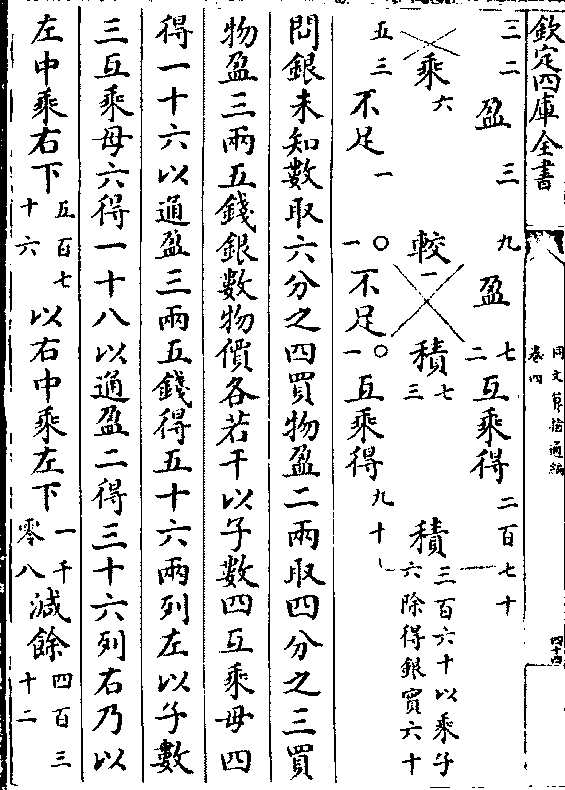 欽定四庫全書
同文算指通編
卷四
四十四
三二 盈 三 九 盈 七二 互乘得 二百七十
乘 六 較 一 積 七三 積 三百六十以乘子六除得銀實六十
五三 不足 一 〇一 不足 〇一 互乘得 九十
問銀未知數取六分之四買物盈二兩取四分之三買
物盈三兩五錢銀數物價各若干以子數四互乘母四
得一十六以通盈三兩五錢得五十六兩列左以子數
三互乘母六得一十八以通盈二得三十六列右乃以
左中乘右下五百七十六以右中乘左下一千零八減餘四百三十二